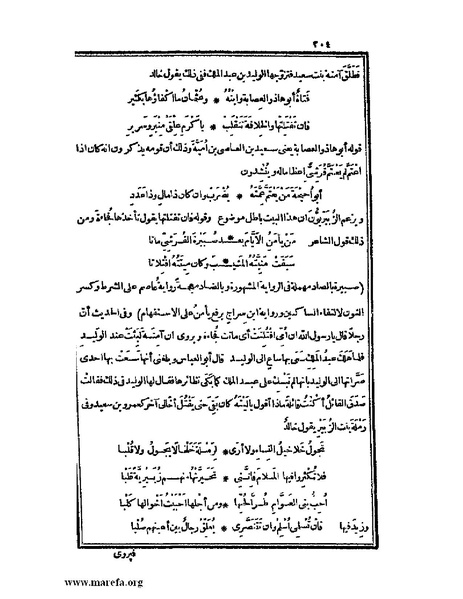 ٢٠٤
فطلّق آمنة بنت سعيد فتزوّجها الوليد بن عبد الملك ففى ذلك يقول خالد
فتاة أبوها ذو العصابة وابنه * وعثمان ما اكفاؤها بكثير
فان تفتلتها والخلافة تنقلب * بأكرم علقى منبر وسرير
قوله أبوها ذو العصابة يعنى سعيد بن العاصى بن أمية وذلك أن قومه يذكرون انه كان اذا
اعتمّ لم يعتمّ قرشىّ اعظاما له وينشدون
أبو أحيحة من يعتمّ عمّته * يضرب وان كان ذا مال وذا عدد
ويزعم الزبيريون ان هذا البيت باطل موضوع وقوله فان تفتلتها يقول تأخذها فجاءة ومن
ذلك قول الشاعر من يأمن الأيام بعد صبيرة القرشىّ ماتا
سبقت منيّته المشيب * وكان ميتته افتلاتا
(صبيرة بالصاد مهملة فى الرواية المشهورة وبالضاد معجمة رواية عاصم على الشرط وكسر
النون لالتقاء الساكنين ورواية ابن سراج برفع يأمن على الاستفهام) وفى الحديث أنّ
رجلا قال يا رسول الله ان أمى افتلتت أى ماتت فجاءة ويروى ان آمنة لبثت عند الوليد
فلما هلك عبد الملك سعى بها ساع الى الوليد قال أبو العباس وبلغنى أنها سعت بها احدى
ضرّاتها الى الوليد بانها لم تبك على عبد الملك كما بكى نظائرها فقال لها الوليد فى ذلك فقالت
صدق القائل أكنت قائلة ماذا أقول يا ليته كان بقى حتى يقتل أخا لى آخر كعمرو بن سعيد وفى
رملة بنت الزبير يقول خالد
تجول خلاخيل النساء ولا أرى * لرملة خلخالا يجول ولا قلبا
فلا تكثروا فيها الملام فاننى * تخيرتها منهم زبيرية قلبا
أحبّ بنى العوّام طرّا لحبها * ومن أجلها أحببت أخوالها كلبا
وزيد فيها فان تسلمى أسلم وان تتنصّرى * يعلّق رجال بين أعينهم صلبا
فيروى
www.marefa.org